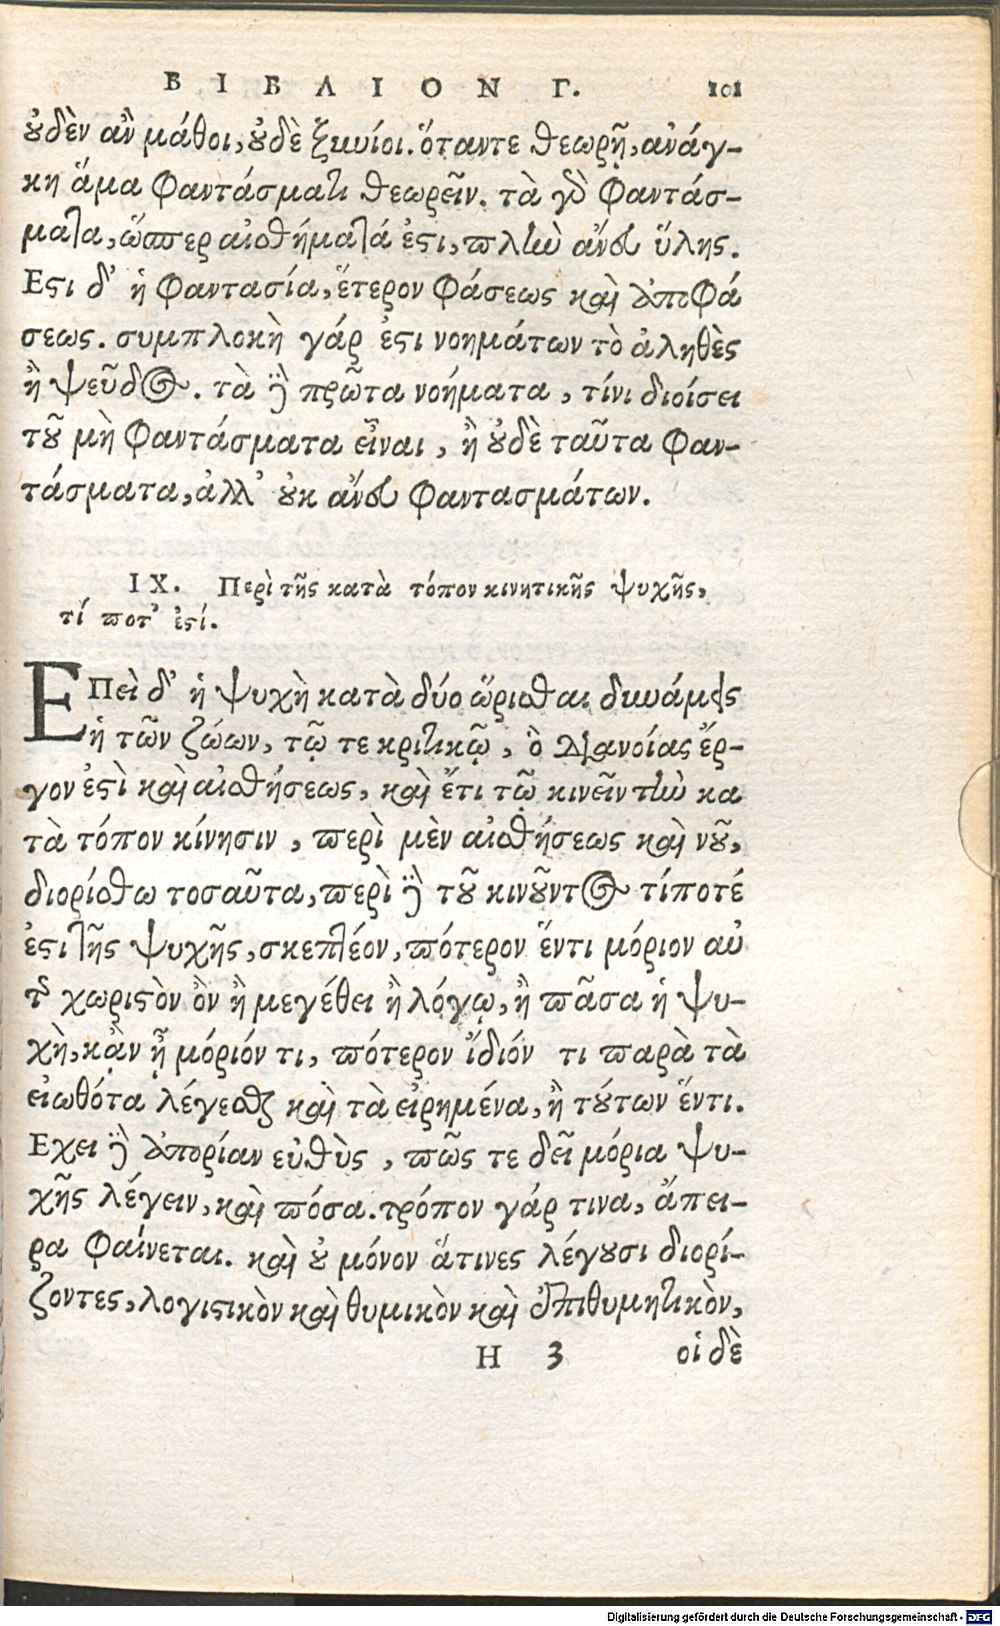 ΒΙΒΛΙΟΝ Γ. 101
οὐδὲν ἂν μάθοι, οὐδὲ ξυνίοι. ὅταντε θεωρῇ, ἀνάγ-
κη ἅμα φαντάσματι θεωρεῖν. τὰ γὰρ φαντάσ-
ματα, ὥσπερ αἰσθήματά ἐστι, πλὴν ἄνευ ὕλης.
Εστι δ' ἡ φαντασία, ἕτερον φάσεως καὶ ἀποφά
σεως. συμπλοκὴ γάρ ἐστι νοημάτων τὸ ἀληθὲς
ἢ ψεῦδος. τὰ δὲ πρῶτα νοήματα, τίνι διοίσει
τοῦ μὴ φαντάσματα εἶναι, ἢ οὐδὲ ταῦτα φαν-
τάσματα, ἀλλ' οὐκ ἄνευ φαντασμάτων.
IX. Περὶ τῆς κατὰ τόπον κινητικῆς ψυχῆς,
τί ποτ' ἐστί.
ΕΠεὶ δ' ἡ ψυχὴ κατὰ δύο ὥρισθαι δυνάμεις
ἡ τῶν ζώων, τῷ τε κριτικῷ, ὃ διανοίας ἔρ-
γον ἐστὶ καὶ αἰσθήσεως, καὶ ἔτι τῷ κινεῖν τὴν κα
τὰ τόπον κίνησιν, περὶ μὲν αἰσθήσεως καὶ νοῦ,
διορίσθω τοσαῦτα, περὶ δὲ τοῦ κινοῦντος τίποτέ
ἐστι τῆς ψυχῆς, σκεπτέον, πότερον ἕντι μόριον αὐ
τῆς χωριστὸν ὂν ἢ μεγέθει ἢ λόγῳ, ἢ πᾶσα ἡ ψυ-
χὴ, κᾂν ᾖ μόριόν τι, πότερον ἴδιόν τι παρὰ τὰ
εἰωθότα λέγεσθαι καὶ τὰ εἰρημένα, ἢ τούτων ἕντι.
Εχει δὲ ἀπορίαν εὐθὺς, πῶς τε δεῖ μόρια ψυ-
χῆς λέγειν, καὶ πόσα. τρόπον γάρ τινα, ἄπει-
ρα φαίνεται. καὶ οὐ μόνον ἅτινες λέγουσι διορί-
ζοντες, λογιστικὸν καὶ θυμικὸν καὶ ἐπιθυμητικὸν,
H 3 οἱ δὲ
Digitalisierung gefördert durch die Deutsche Forschungsgemeinschaft - DFG